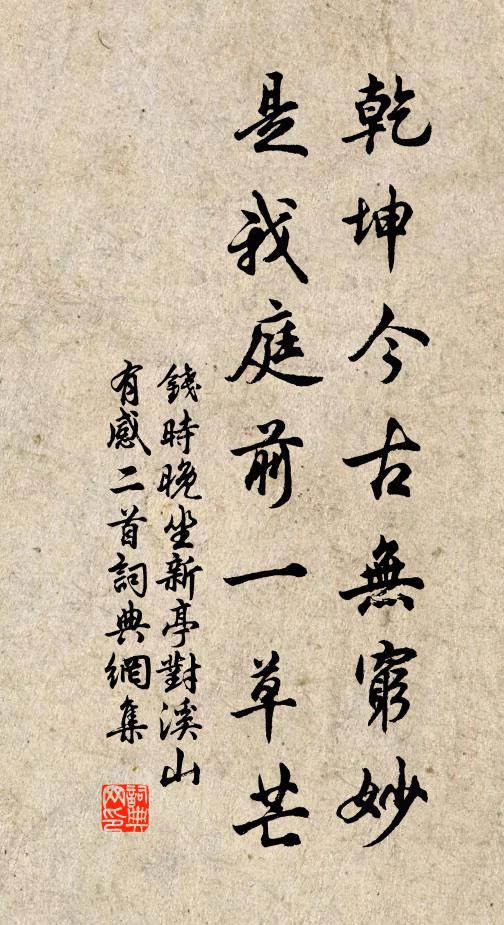 乾坤今古無窮妙
是我庭前一草芒
錢時晚坐新亭對溪山
有感二首詞典網集
詞典網印